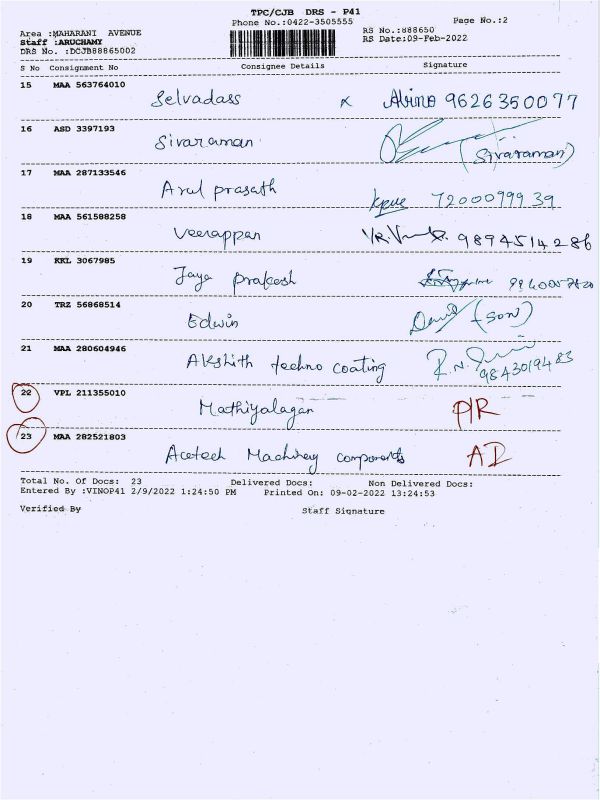 TPC/CJB DRS - P41
Phone No.:0422-3505555
Page No.:2
Area :MAHARANI AVENUE
Staff :ARUCHAMY
DRS No. :DCJB88865002
RS No.:888650
RS Date:09-Feb-2022
S No Consignment No Consignee Details Signature
15 MAA 563764010 Selvadass x Abino 9626350077
16 ASD 3397193 Sivaraman (Sivaraman)
17 MAA 287133546 Arul prasath 7200099939
18 MAA 561588258 Veerappan 9894514286
19 KKL 3067985 Jaya prakash
20 TRZ 56868514 Edwin (son)
21 MAA 280604946 Akshith techno coating 9843019483
22 VPL 211355010 Mathiyalagan P/R
23 MAA 282521803 Acetech Machinery components AD
Total No. Of Docs: 23 Delivered Docs: Non Delivered Docs:
Entered By :VINOP41 2/9/2022 1:24:50 PM Printed On: 09-02-2022 13:24:53
Verified By Staff Signature